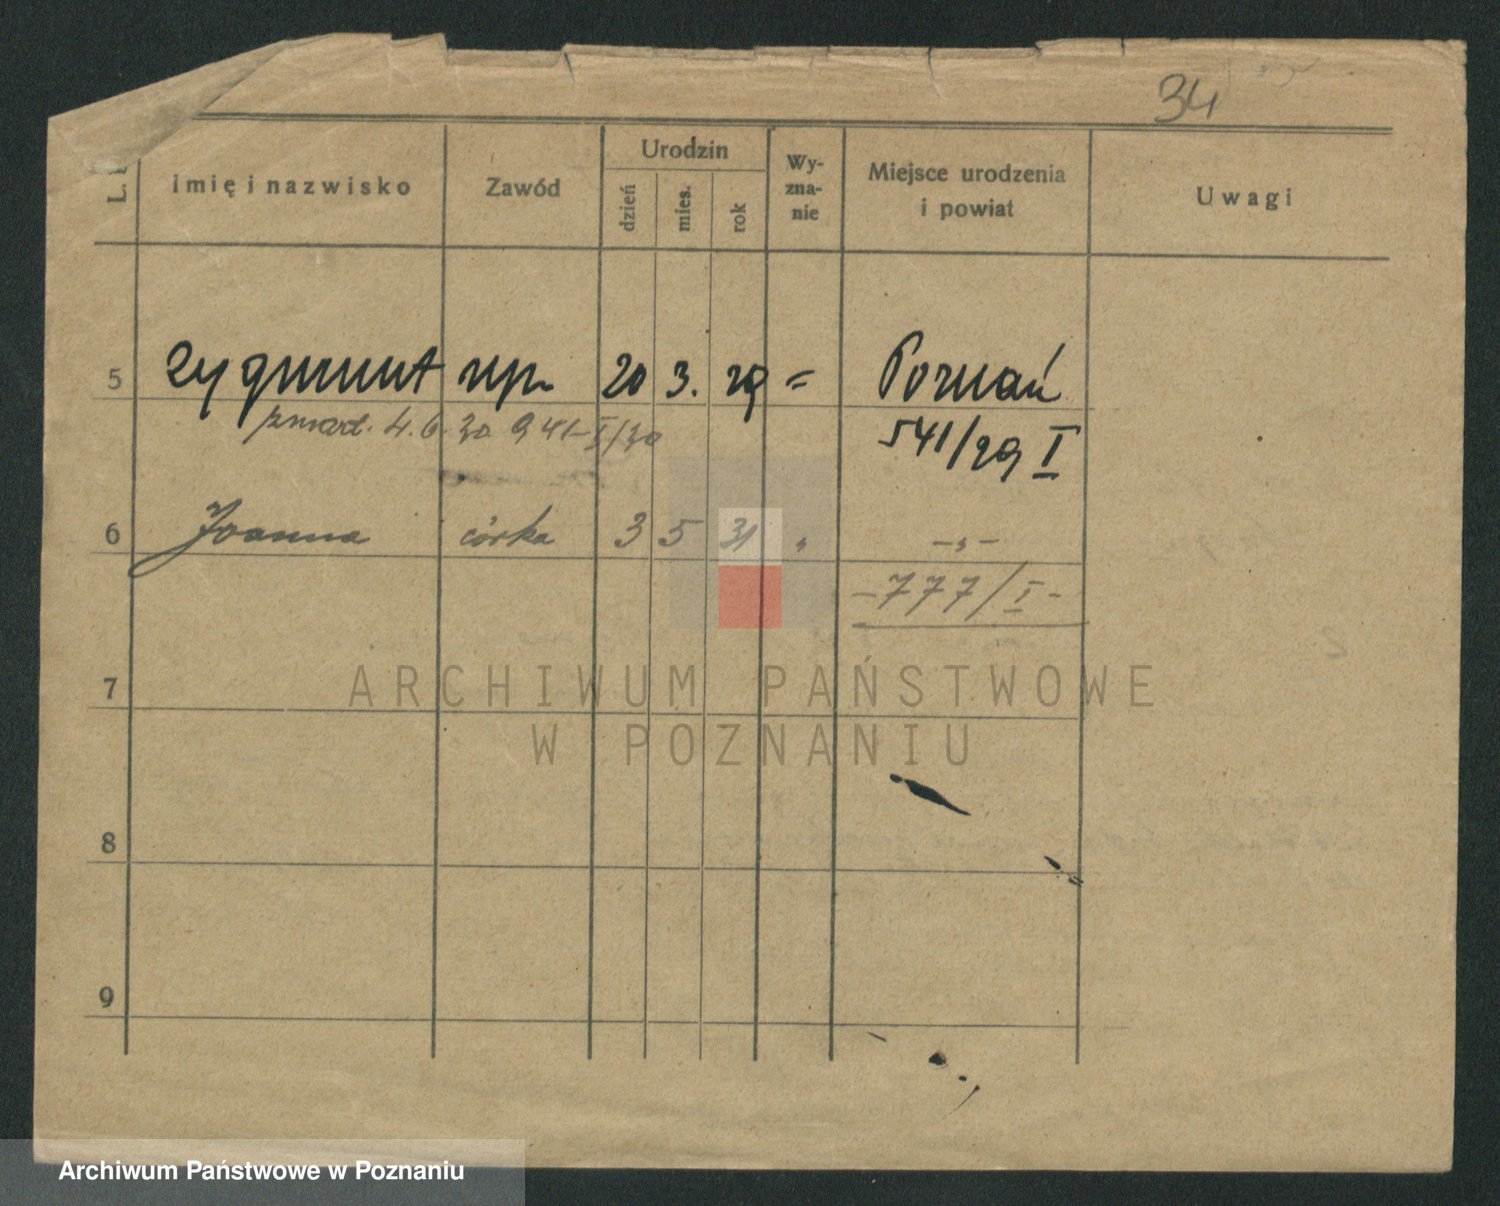 34
L.
imię i nazwisko Zawód Urodzin dzień mies. rok Wy-zna-nie Miejsce urodzenia i powiat Uwagi
5 Zygmunt syn 20 3. 29 = Poznań
zmarł. 4.6.30 941-I/30 541/29 I
6 Joanna córka 3 5 31 " -"-
-777/I-
7
ARCHIWUM PAŃSTWOWE
W POZNANIU
8
9
Archiwum Państwowe w Poznaniu